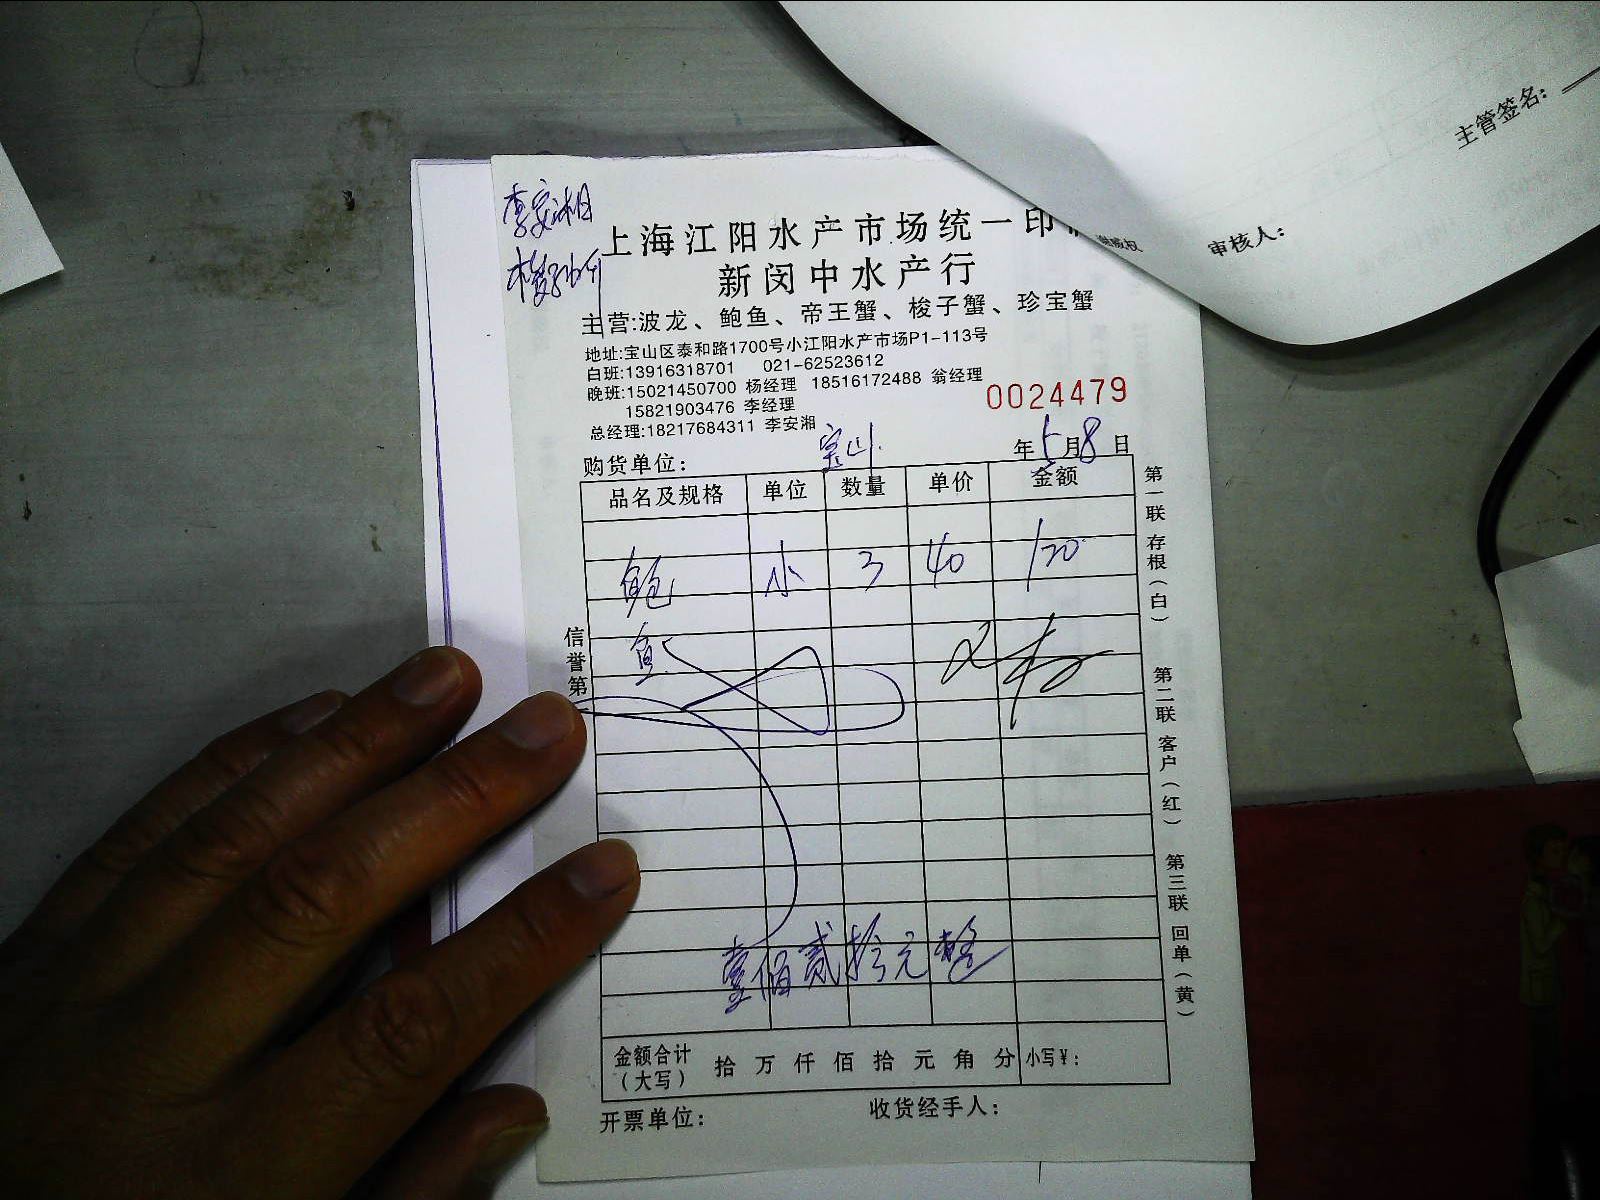 主管签名：
审核人：
李安湘
上海江阳水产市场统一印
新闵中水产行
主营:波龙、鲍鱼、帝王蟹、梭子蟹、珍宝蟹
地址:宝山区泰和路1700号小江阳水产市场P1-113号
白班:13916318701 021-62523612
晚班:15021450700 杨经理 18516172488 翁经理
15821903476 李经理
总经理:18217684311 李安湘
0024479
购货单位： 宝山 年 5 月 8 日
品名及规格 单位 数量 单价 金额
鲍 小 3 40 120
鱼
壹佰贰拾元整
金额合计（大写） 拾 万 仟 佰 拾 元 角 分 小写￥：
开票单位： 收货经手人：
信誉第
第一联 存根（白）
第二联 客户（红）
第三联 回单（黄）